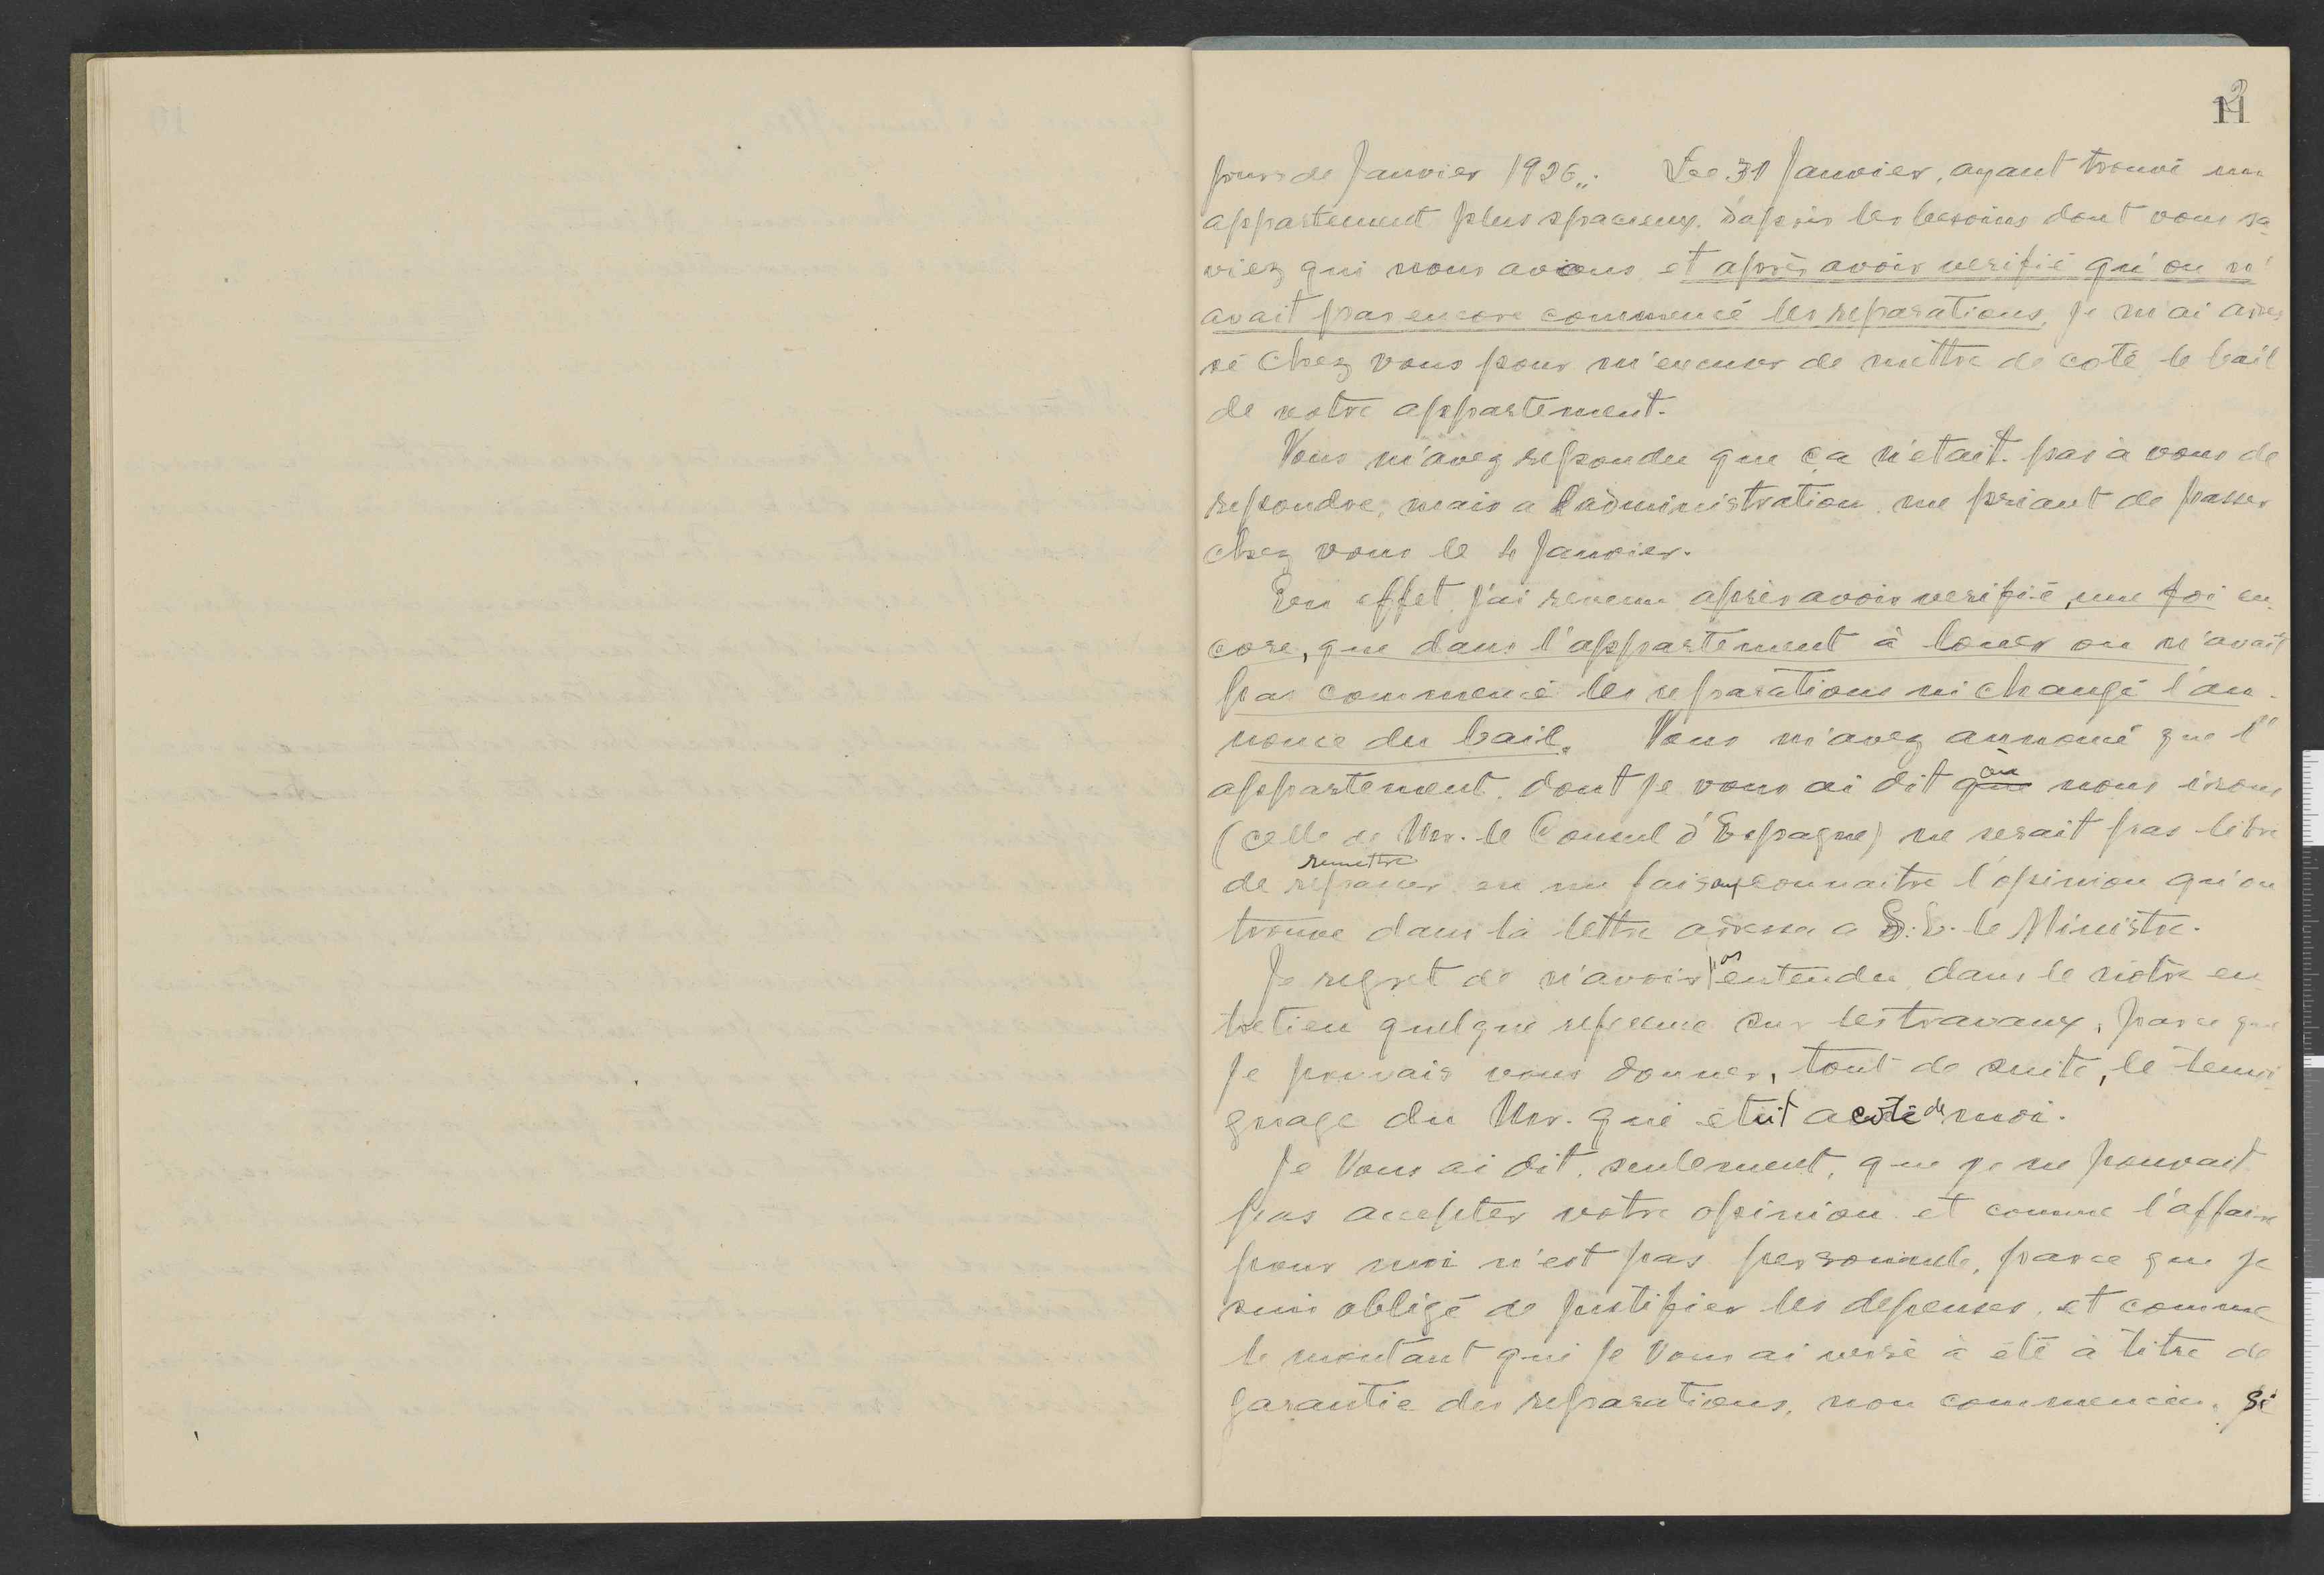 11
2
jours de Janvier 1926„. Le 31 Janvier, ayant trouvé un
appartement plus spacieux. d'aprés les besoins dont vous sa
viez qui nous avions et aprés avoir verifié qu'on n'
avait pas encore commencé les reparations, je m'ai adres
sé chez vous pour m'excuser de mettre de coté le bail
de notre appartement.
Vous m'avez repondu que ça n'etait pas à vous de
repondre, mais a l'administration, me priant de passer
chez vous le 4 Janvier.
En effet j'ai revenu aprés avoir verifié, une foi en
core, que dans l'appartement à louer on n'avait
pas commencé les reparations ni changé l'an-
nonce du bail. Vous m'avez annoncé que l'
appartement, dont je vous ai dit que où nous irons
(celle de Mr. le Consul d'Espagne) ne serait pas libre
de remettre en me faisant connaitre l'opinion qu'on
trouve dans la lettre adressa a S. E. le Ministre.
Je regret de n'avoir pas entendu, dans le notre en
tretien quelque sur les travaux, parce que
je pouvais vous donner, tout de suite, le temoi
gnage du Mr. qui etait a coté de moi.
Je Vous ai dit, seulement, que je ne pouvait
pas accepter votre opinion et comme l'affaire
pour moi n'est pas personnele, parce que je
suis obligé de justifier les depenses, et comme
le montant qui je Vous ai versé à été à titre de
garantie des reparations, non commencées, si